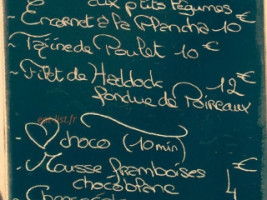 aux p'tits légumes
- Encornet à la Plancha 10 €
- Tajine de Poulet 10 €
- Filet de Haddock 12 €
fondue de Poireaux
- ♡ choco (10 min)
- Mousse framboises €
choco blanc 4